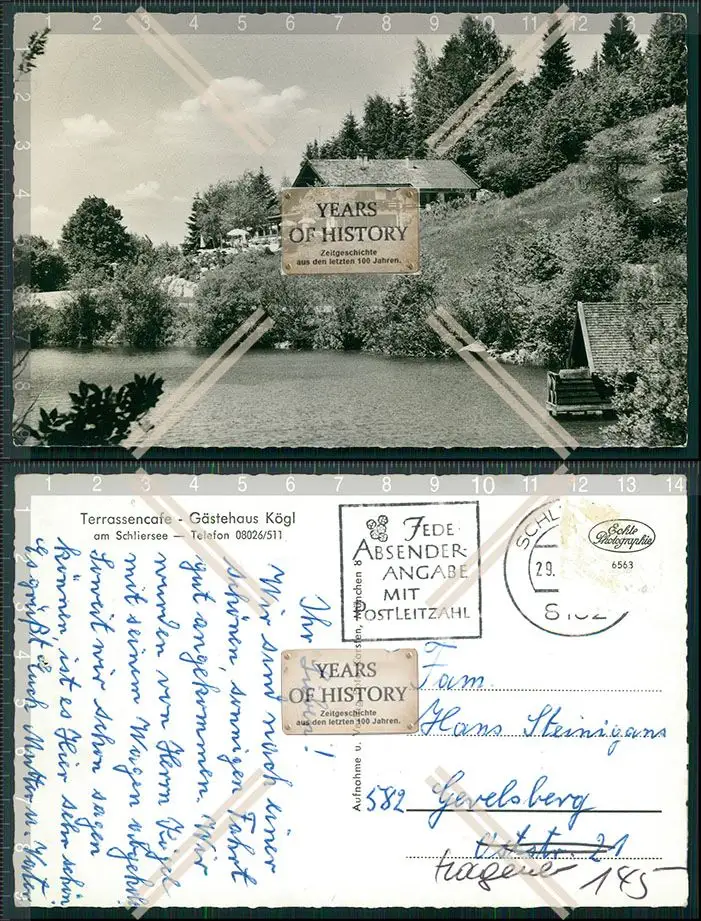 YEARS
OF HISTORY
Zeitgeschichte
aus den letzten 100 Jahren.
Terrassencafe - Gästehaus Kögl
am Schliersee — Telefon 08026/511
JEDE
ABSENDER-
ANGABE
MIT
POSTLEITZAHL
SCHL
29.
8162
Echte
Photographie
6563
Aufnahme u. München 8
YEARS
OF HISTORY
Zeitgeschichte
aus den letzten 100 Jahren.
Ihr Lieben!
Wir sind nach einer
schönen, sonnigen Fahrt
gut angekommen. Wir
wurden von Herrn Kögel
mit seinem Wagen abgeholt
Soweit wir schon sagen
können, ist es Hier sehr schön
Es grüßt Euch Mutter u. Vater
Fam.
Hans Steinigans
582 Gevelsberg
Oststr. 21
Hagener 145